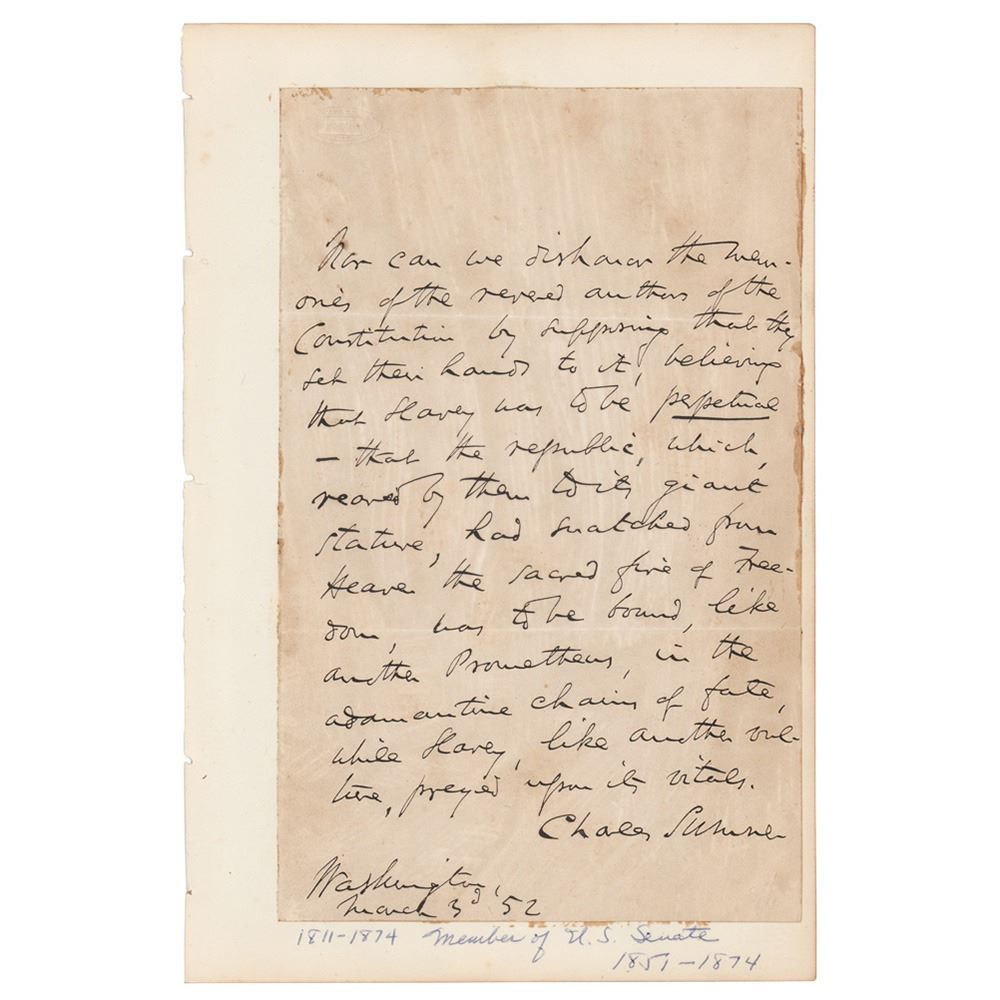 Nor can we dishonor the mem-
ories of the revered authors of the
Constitution by supposing that they
set their hands to it, believing
that Slavery was to be perpetual
— that the republic, which,
reared by them to its giant
stature, had snatched from
Heaven the sacred fire of Free-
dom, was to be bound, like
another Prometheus, in the
adamantine chains of fate,
while Slavery, like another vul-
ture, preyed upon its vitals.
Charles Sumner
Washington,
March 3d 52
1811-1874 Member of U.S. Senate
1851-1874